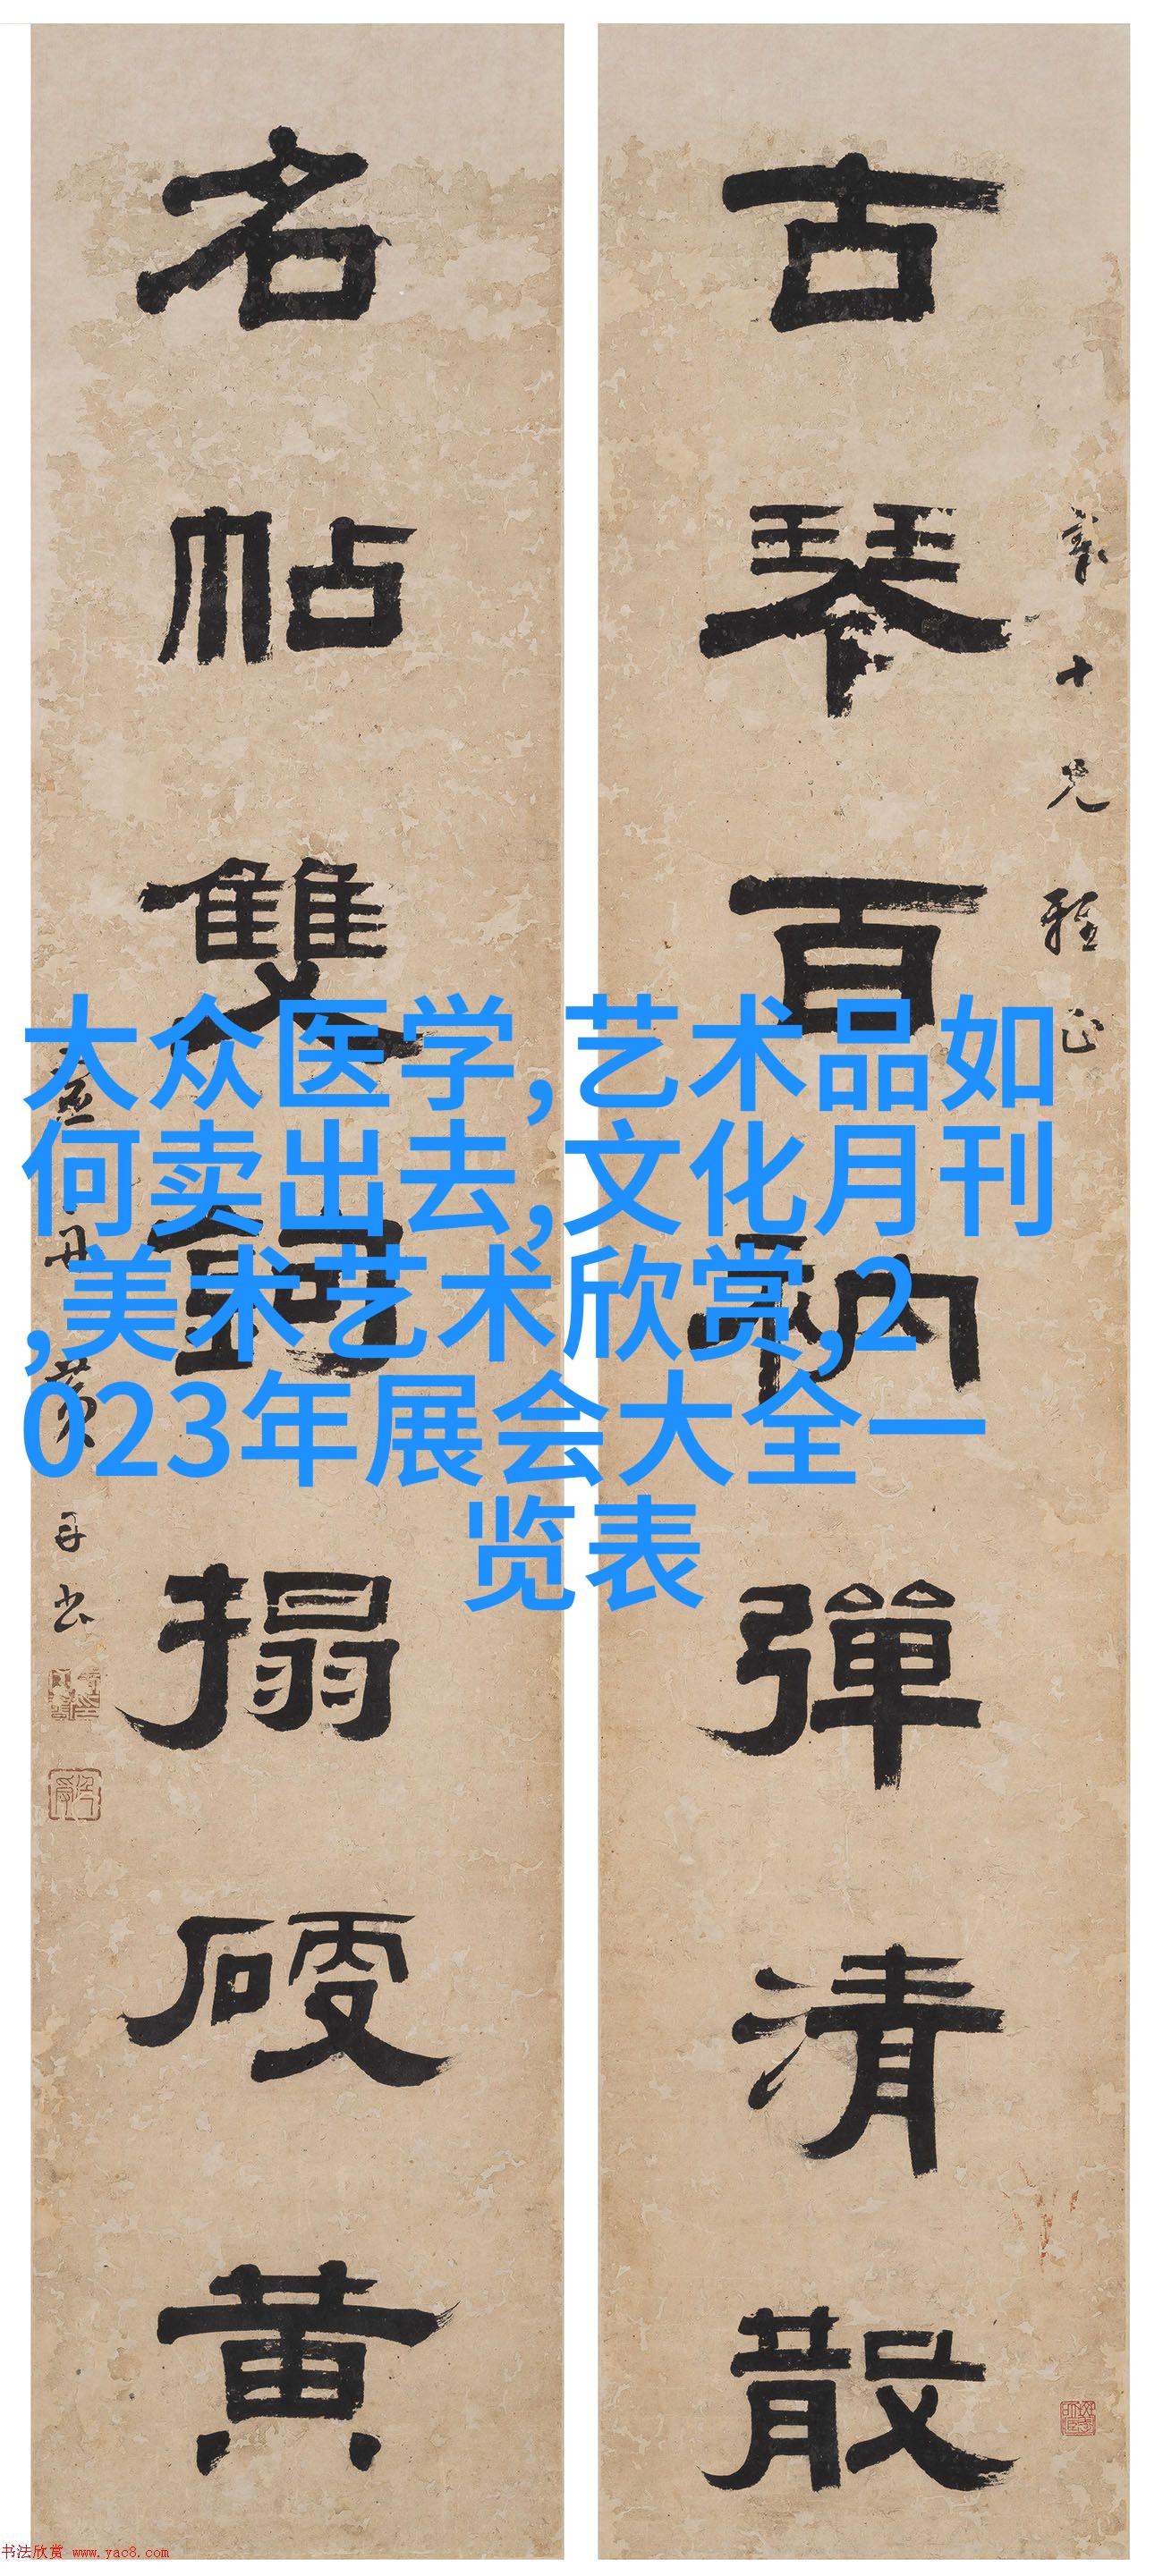 古琴百衲彈清散
名帖雙鉤搨硬黄
十兄雅正
大众医学,艺术品如
何卖出去,文化月刊
,美术艺术欣赏,2
023年展会大全一
览表
书法欣赏 www.yac8.com